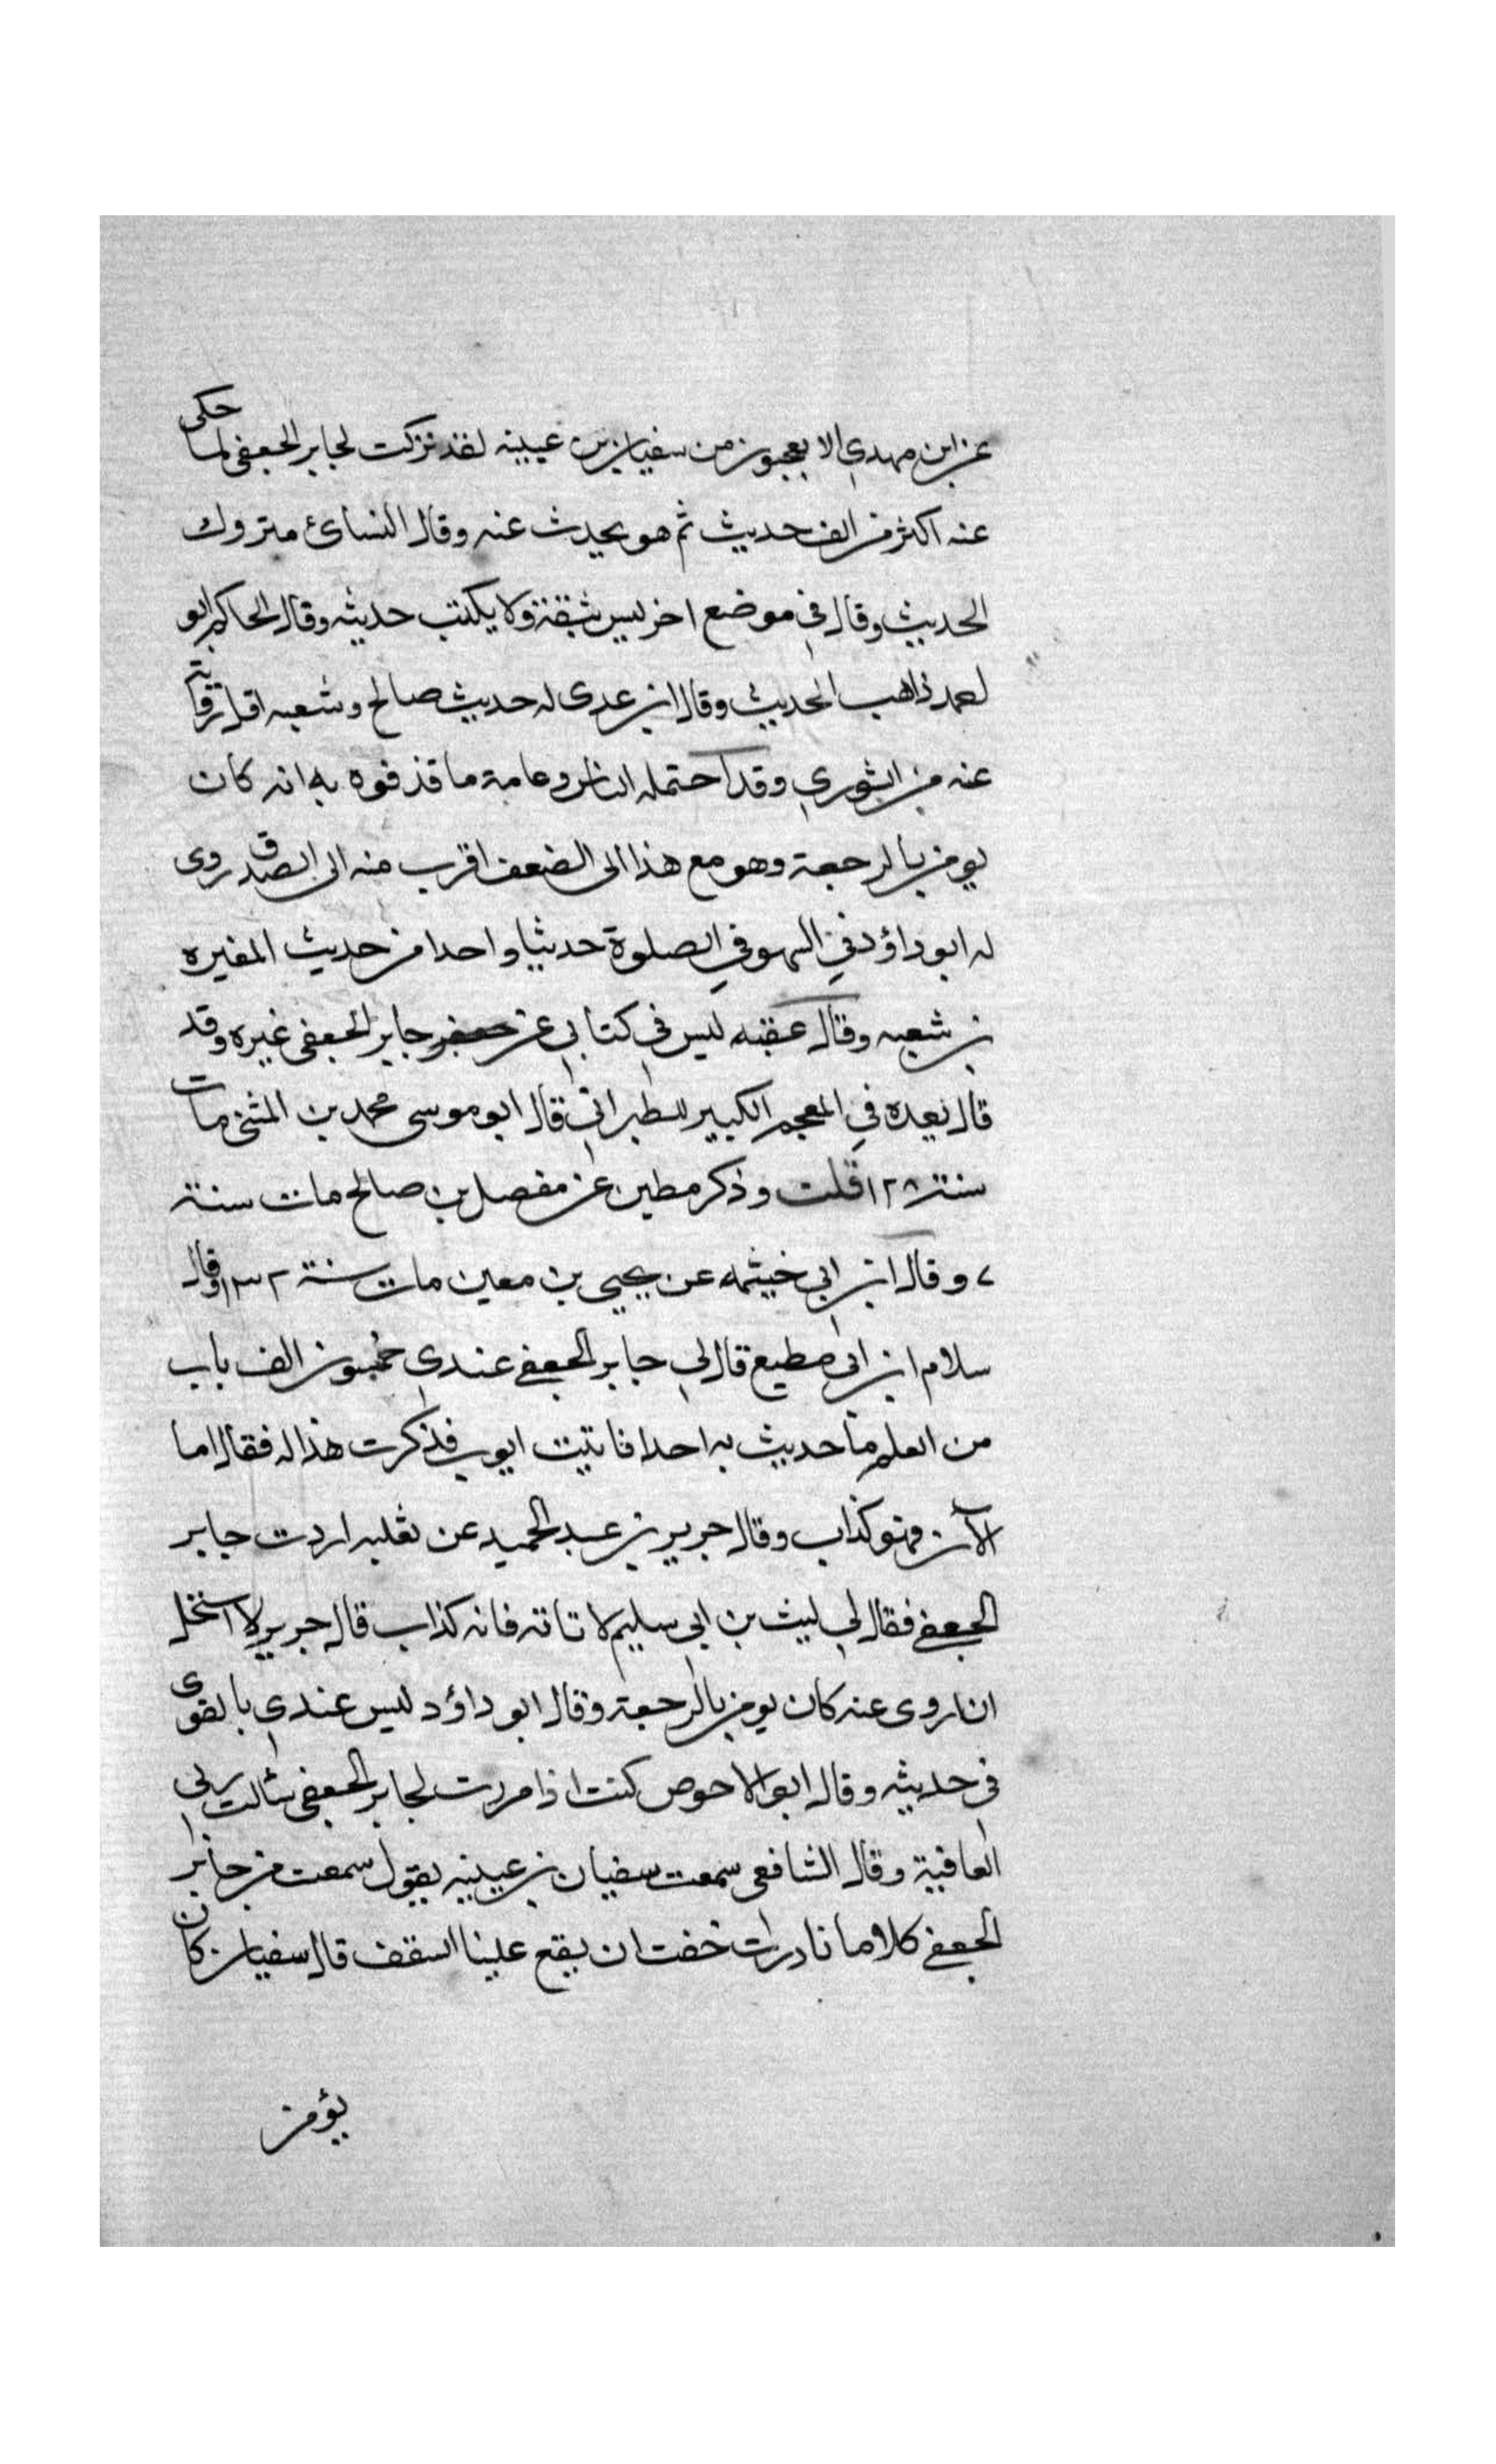 عن ابن مهدي الا يعجبون من سفيان بن عيينه لقد تركت لجابر الجعفي لما حكى
عنه اكثر من الف حديث ثم هو يحدث عنه وقال النسائ متروك
الحديث وقال في موضع اخر ليس بثقة ولا يكتب حديثه وقال الحاكم ابو
احمد ذاهب الحديث وقال ابن عدى له حديث صالح وشعبه اقل رواية
عنه من الثوري وقد احتمله الناس وعامة ما قذفوه به انه كان
يومن بالرجعة وهو مع هذا الى الضعف اقرب منه الى الصدق روى
له ابو داؤد في السهو في الصلوة حديثا واحدا من حديث المغيره
بن شعبه وقال عقبه ليس في كتابي عن جابر الجعفي غيره وقد
قال بعده في المعجم الكبير للطبراني قال ابو موسى محمد بن المثنى مات
سنة ١٢٨ قلت وذكر مطين عن مفصل بن صالح مات سنة
٧ وقال ابن ابي خيثمه عن يحيى بن معين مات سنة ١٣٢ وقال
سلام ابن ابي مطيع قال لي جابر الجعفي عندي خمسون الف باب
من العلم ما حديث به احدا فاتيت ايوب فذكرت هذا له فقال اما
الآن فهو كذاب وقال جرير بن عبد الحميد عن ثعلبه اردت جابر
الجعفي فقال لي ليث بن ابي سليم لا تاته فانه كذاب قال جرير لا استحل
ان اروى عنه كان يومن بالرجعة وقال ابو داؤد ليس عندي بالقوى
في حديثه وقال ابو الاحوص كنت اذا مررت لجابر الجعفي سألت ربي
العافية وقال الشافعي سمعت سفيان بن عيينه يقول سمعت من جابر
الجعفي كلاما نادرات خفت ان يقع علينا السقف قال سفيان كان
يؤمن